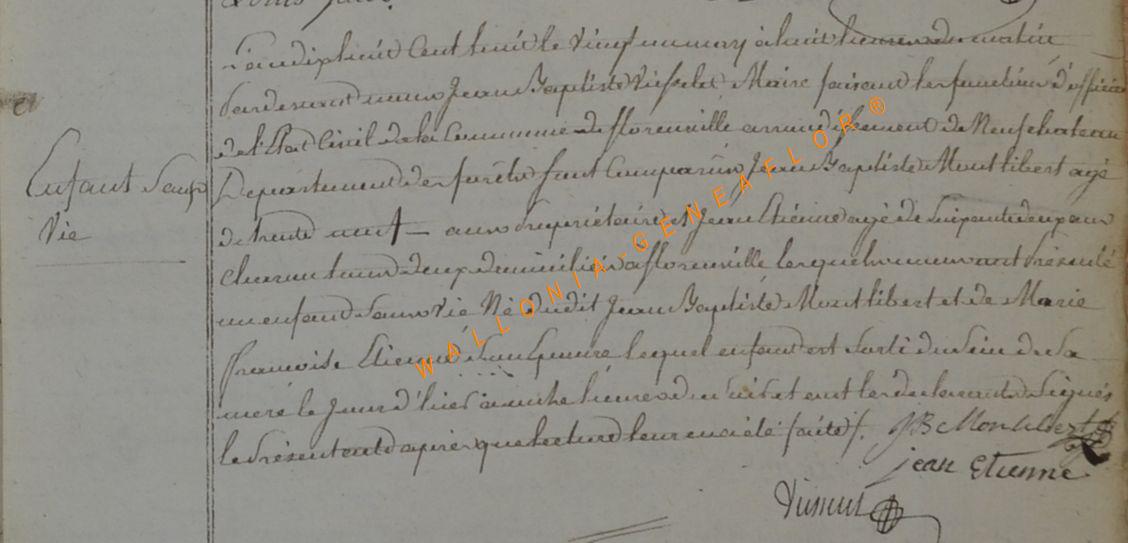 L'an dix huit Cent huit le Vingt un may à huit heures du matin
Pardevant nous Jean Baptiste Maire faisant les fonctions d'officier
de l'Etat Civil de la Commune de florenville arrondissement de Neufchateau
Enfant sans
Departement des forêts sont Comparus Jean Baptiste Montlibert agé
Vie
de trente neuf ans propriétaire et Jean Etienne agé de Soixante deux ans
tous deux domiciliés a florenville lesquels nous ont présenté
un enfant sans vie Né dudit Jean Baptiste Montlibert et de Marie
françoise Etienne Son Epouse lequel enfant est sorti du Sein de Sa
mere le Jour d'hier à onze heures du Soir et ont les déclarants Signés
le présent acte après que lecture leur en a été faite /. JB Montlibert
jean Etienne
WALLONIA-GENEAFLOR ®